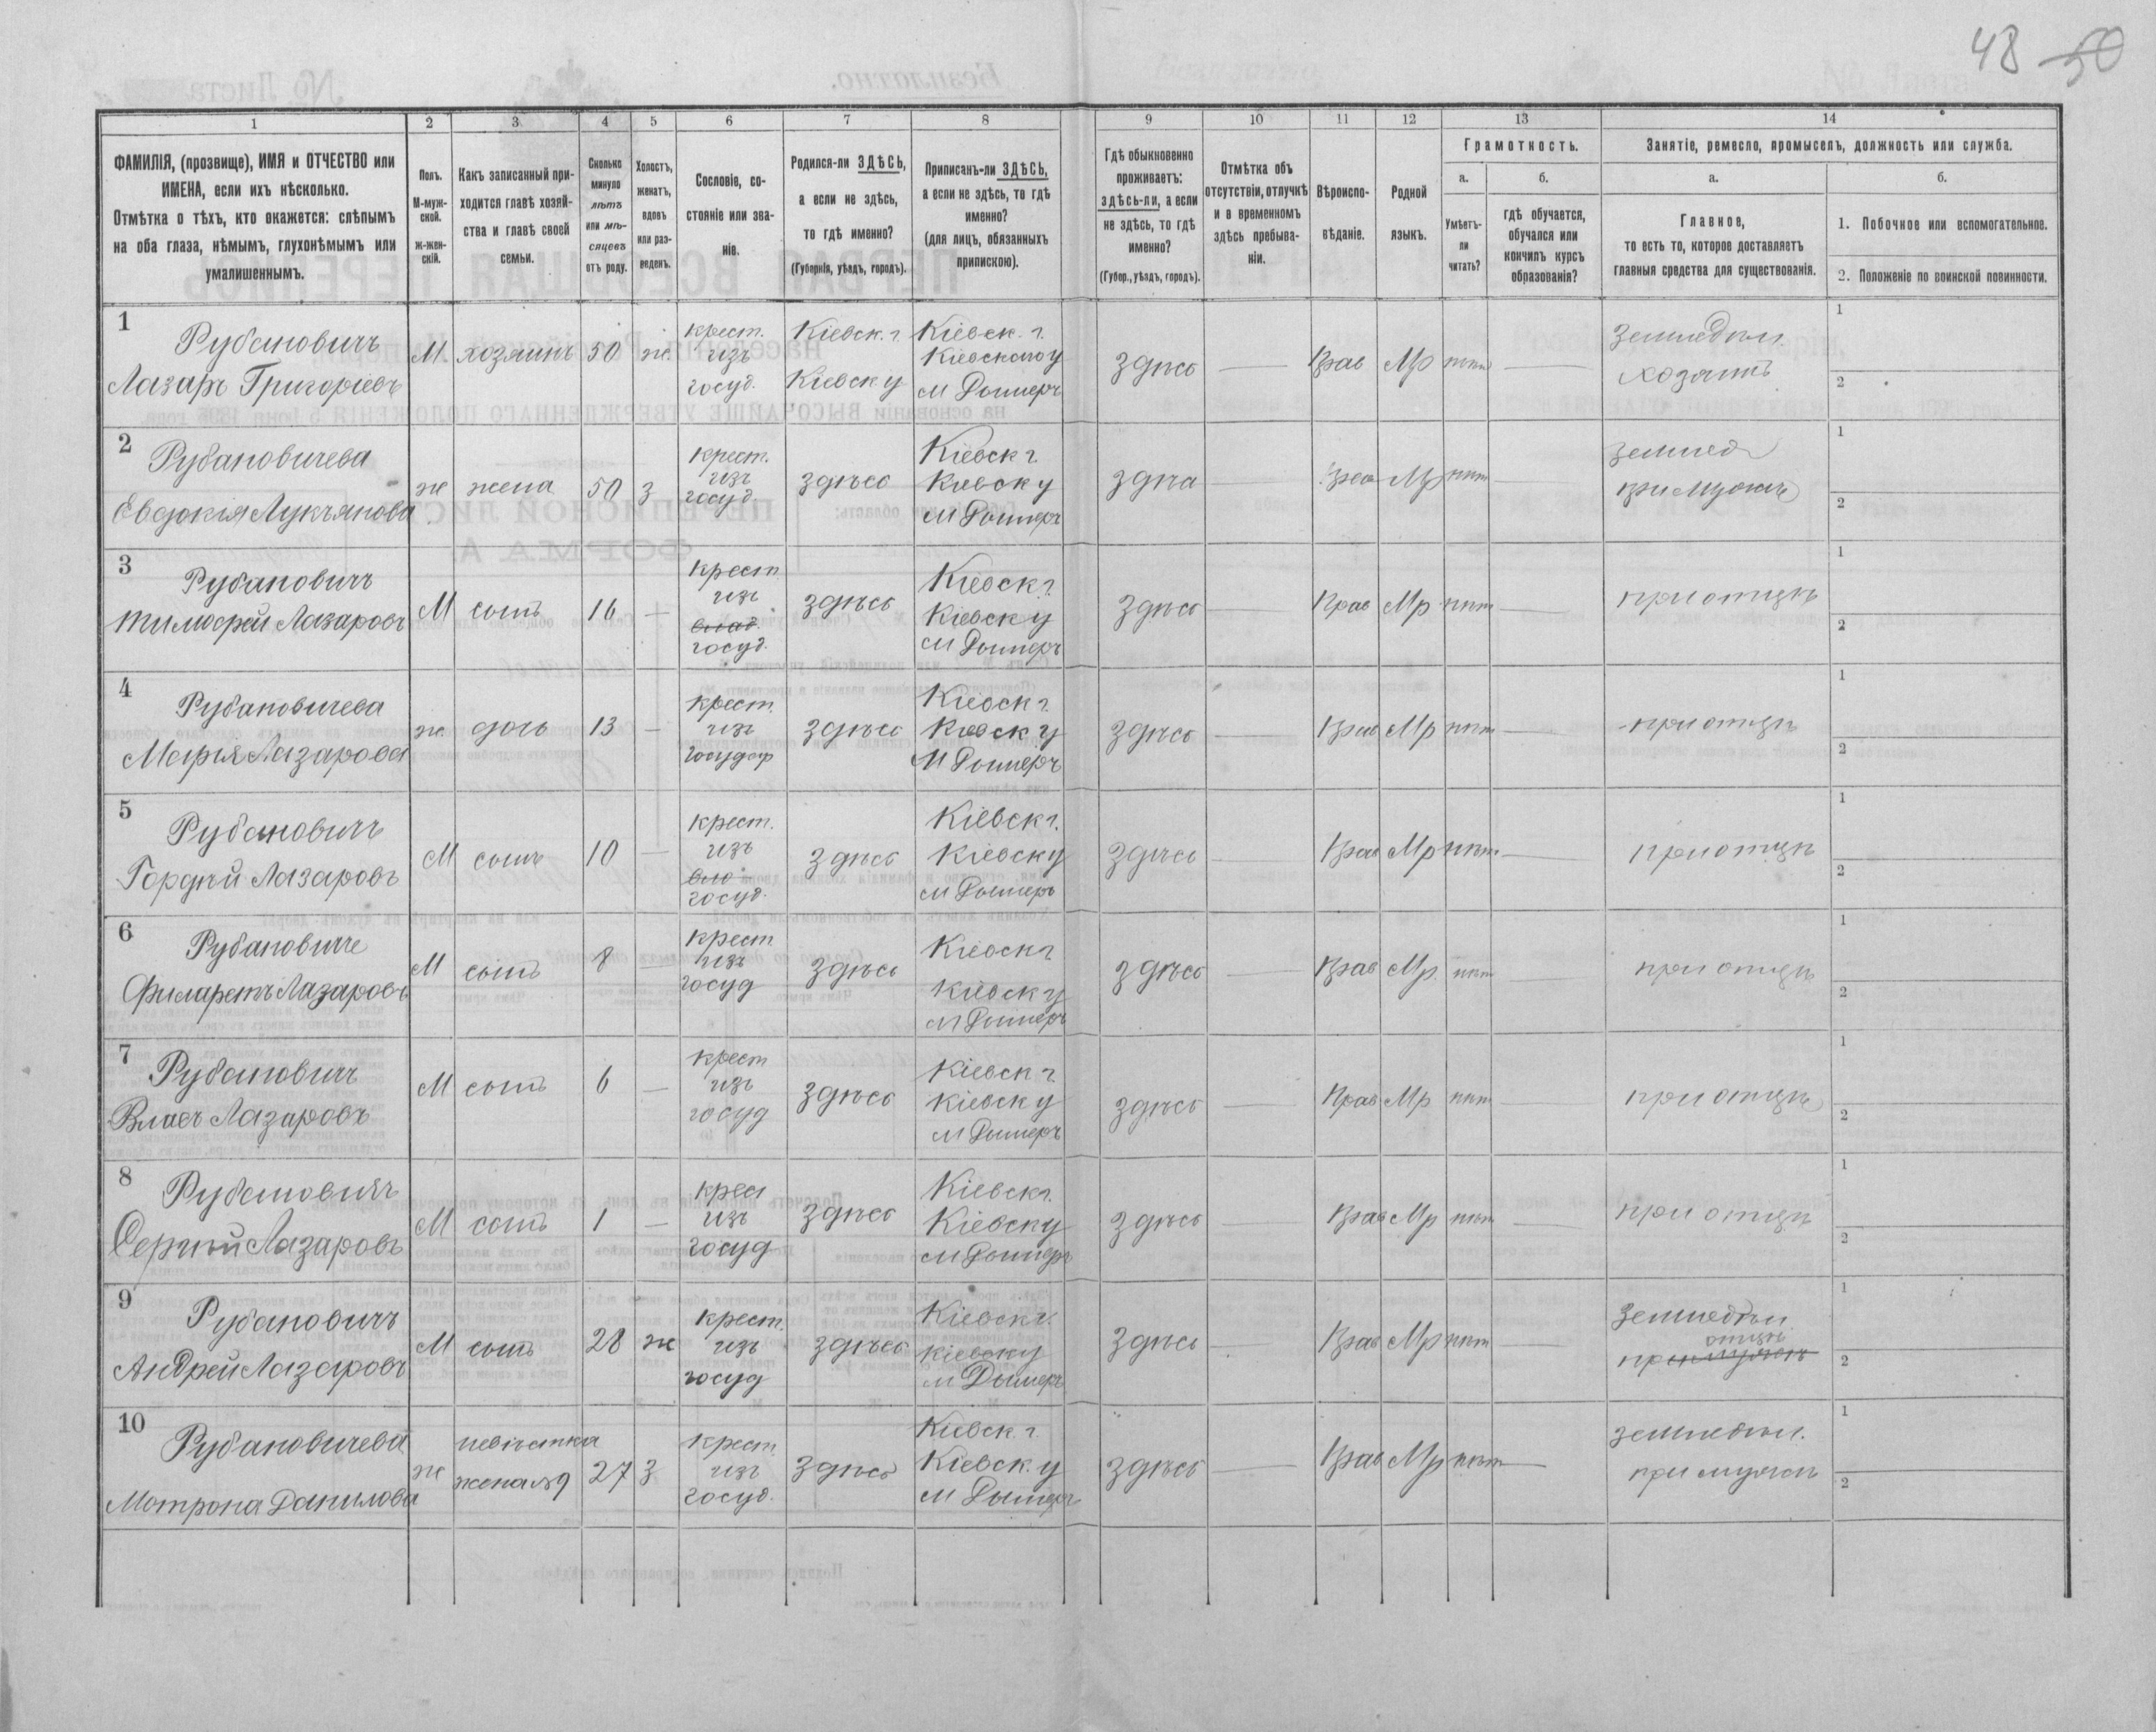 48 50
1 2 3 4 5 6 7 8 9 10 11 12 13 14
ФАМИЛІЯ, (прозвище), ИМЯ и ОТЧЕСТВО или
ИМЕНА, если ихъ нѣсколько.
Отмѣтка о тѣхъ, кто окажется: слѣпымъ
на оба глаза, нѣмымъ, глухонѣмымъ или
умалишеннымъ.
Полъ.
М-муж-
ской.
ж-жен-
скій.
Какъ записанный при-
ходится главѣ хозяй-
ства и главѣ своей
семьи.
Сколько
минуло
лѣтъ
или мѣ-
сяцевъ
отъ роду.
Холостъ,
женатъ,
вдовъ
или раз-
веденъ.
Сословіе, со-
стояніе или зва-
ніе.
Родился-ли ЗДѢСЬ,
а если не здѣсь,
то гдѣ именно?
(Губернія, уѣздъ, городъ).
Приписанъ-ли ЗДѢСЬ,
а если не здѣсь, то гдѣ
именно?
(для лицъ, обязанныхъ
припискою).
Гдѣ обыкновенно
проживаетъ:
здѣсь-ли, а если
не здѣсь, то гдѣ
именно?
(Губор., уѣздъ, городъ).
Отмѣтка объ
отсутствіи, отлучкѣ
и о временномъ
здѣсь пребыва-
ніи.
Вѣроиспо-
вѣданіе.
Родной
языкъ.
Грамотность.
а.
Умѣетъ-
ли
читать?
б.
гдѣ обучается,
обучался или
кончилъ курсъ
образованія?
Занятіе, ремесло, промыселъ, должность или служба.
а.
Главное,
то есть то, которое доставляетъ
главныя средства для существованія.
б.
1. Побочное или вспомогательное.
2. Положеніе по воинской повинности.
1
Рубановичъ
Лазарь Григоріевъ
М хозяинъ 50 ж.
крест.
изъ
госуд.
Кіевск. г.
Кіевск у
Кіевск. г.
Кіевскаго у
м Дымеръ
здѣсь — Прав Мр нѣт —
Земледѣл.
хозяинъ
1
2
2
Рубановичева
Евдокія Лукьянова
ж жена 50 з
крест.
изъ
госуд
здѣсь
Кіевск г.
Кіевск у
м Дымеръ
здѣсь — Прав Мр нѣт —
земледѣ
при мужѣ
1
2
3
Рубановичъ
Тимофей Лазаровъ
М сынъ 16 —
крест
изъ
влад.
госуд.
здѣсь
Кіевск г.
Кіевск у
м Дымеръ
здѣсь — Прав Мр нѣт —
при отцѣ
1
2
4
Рубановичева
Марія Лазарова
ж. дочь 13 —
крест.
изъ
государ
здѣсь
Кіевск г.
Кіевск у
м Дымеръ
здѣсь — Прав Мр нѣт —
при отцѣ
1
2
5
Рубановичъ
Гордѣй Лазаровъ
М сынъ 10 —
крест.
изъ
вла
госуд.
здѣсь
Кіевск г.
Кіевск у
м Дымеръ
здѣсь — Прав Мр нѣт —
при отцѣ
1
2
6
Рубановичъ
Филаретъ Лазаровъ
М сынъ 8 —
крест
изъ
госуд
здѣсь
Кіевск г
Кіевск у
м Дымеръ
здѣсь — Прав Мр. нѣт —
при отцѣ
1
2
7
Рубановичъ
Власъ Лазаровъ
М сынъ 6 —
крест
изъ
госуд
здѣсь
Кіевск г.
Кіевск у
м Дымеръ
здѣсь — Прав Мр нѣт —
при отцѣ
1
2
8
Рубановичъ
Сергѣй Лазаровъ
М сынъ 1 —
крест
изъ
госуд
здѣсь
Кіевск г.
Кіевск у
м Дымеръ
здѣсь — Прав Мр нѣт —
при отцѣ
1
2
9
Рубановичъ
Андрей Лазаровъ
М сынъ 28 ж
крест.
изъ
госуд
здѣсь
Кіевск г.
Кіевск у
м Дымеръ
здѣсь — Прав Мр нѣт —
Земледѣл.
отцѣ
при мужѣ
1
2
10
Рубановичева
Мотрона Данилова
ж
невѣстка
жена № 9
27 з
крест.
изъ
госуд.
здѣсь
Кіевск. г.
Кіевск. у
м Дымеръ
здѣсь — Прав Мр нѣт —
земледѣл.
при мужѣ
1
2